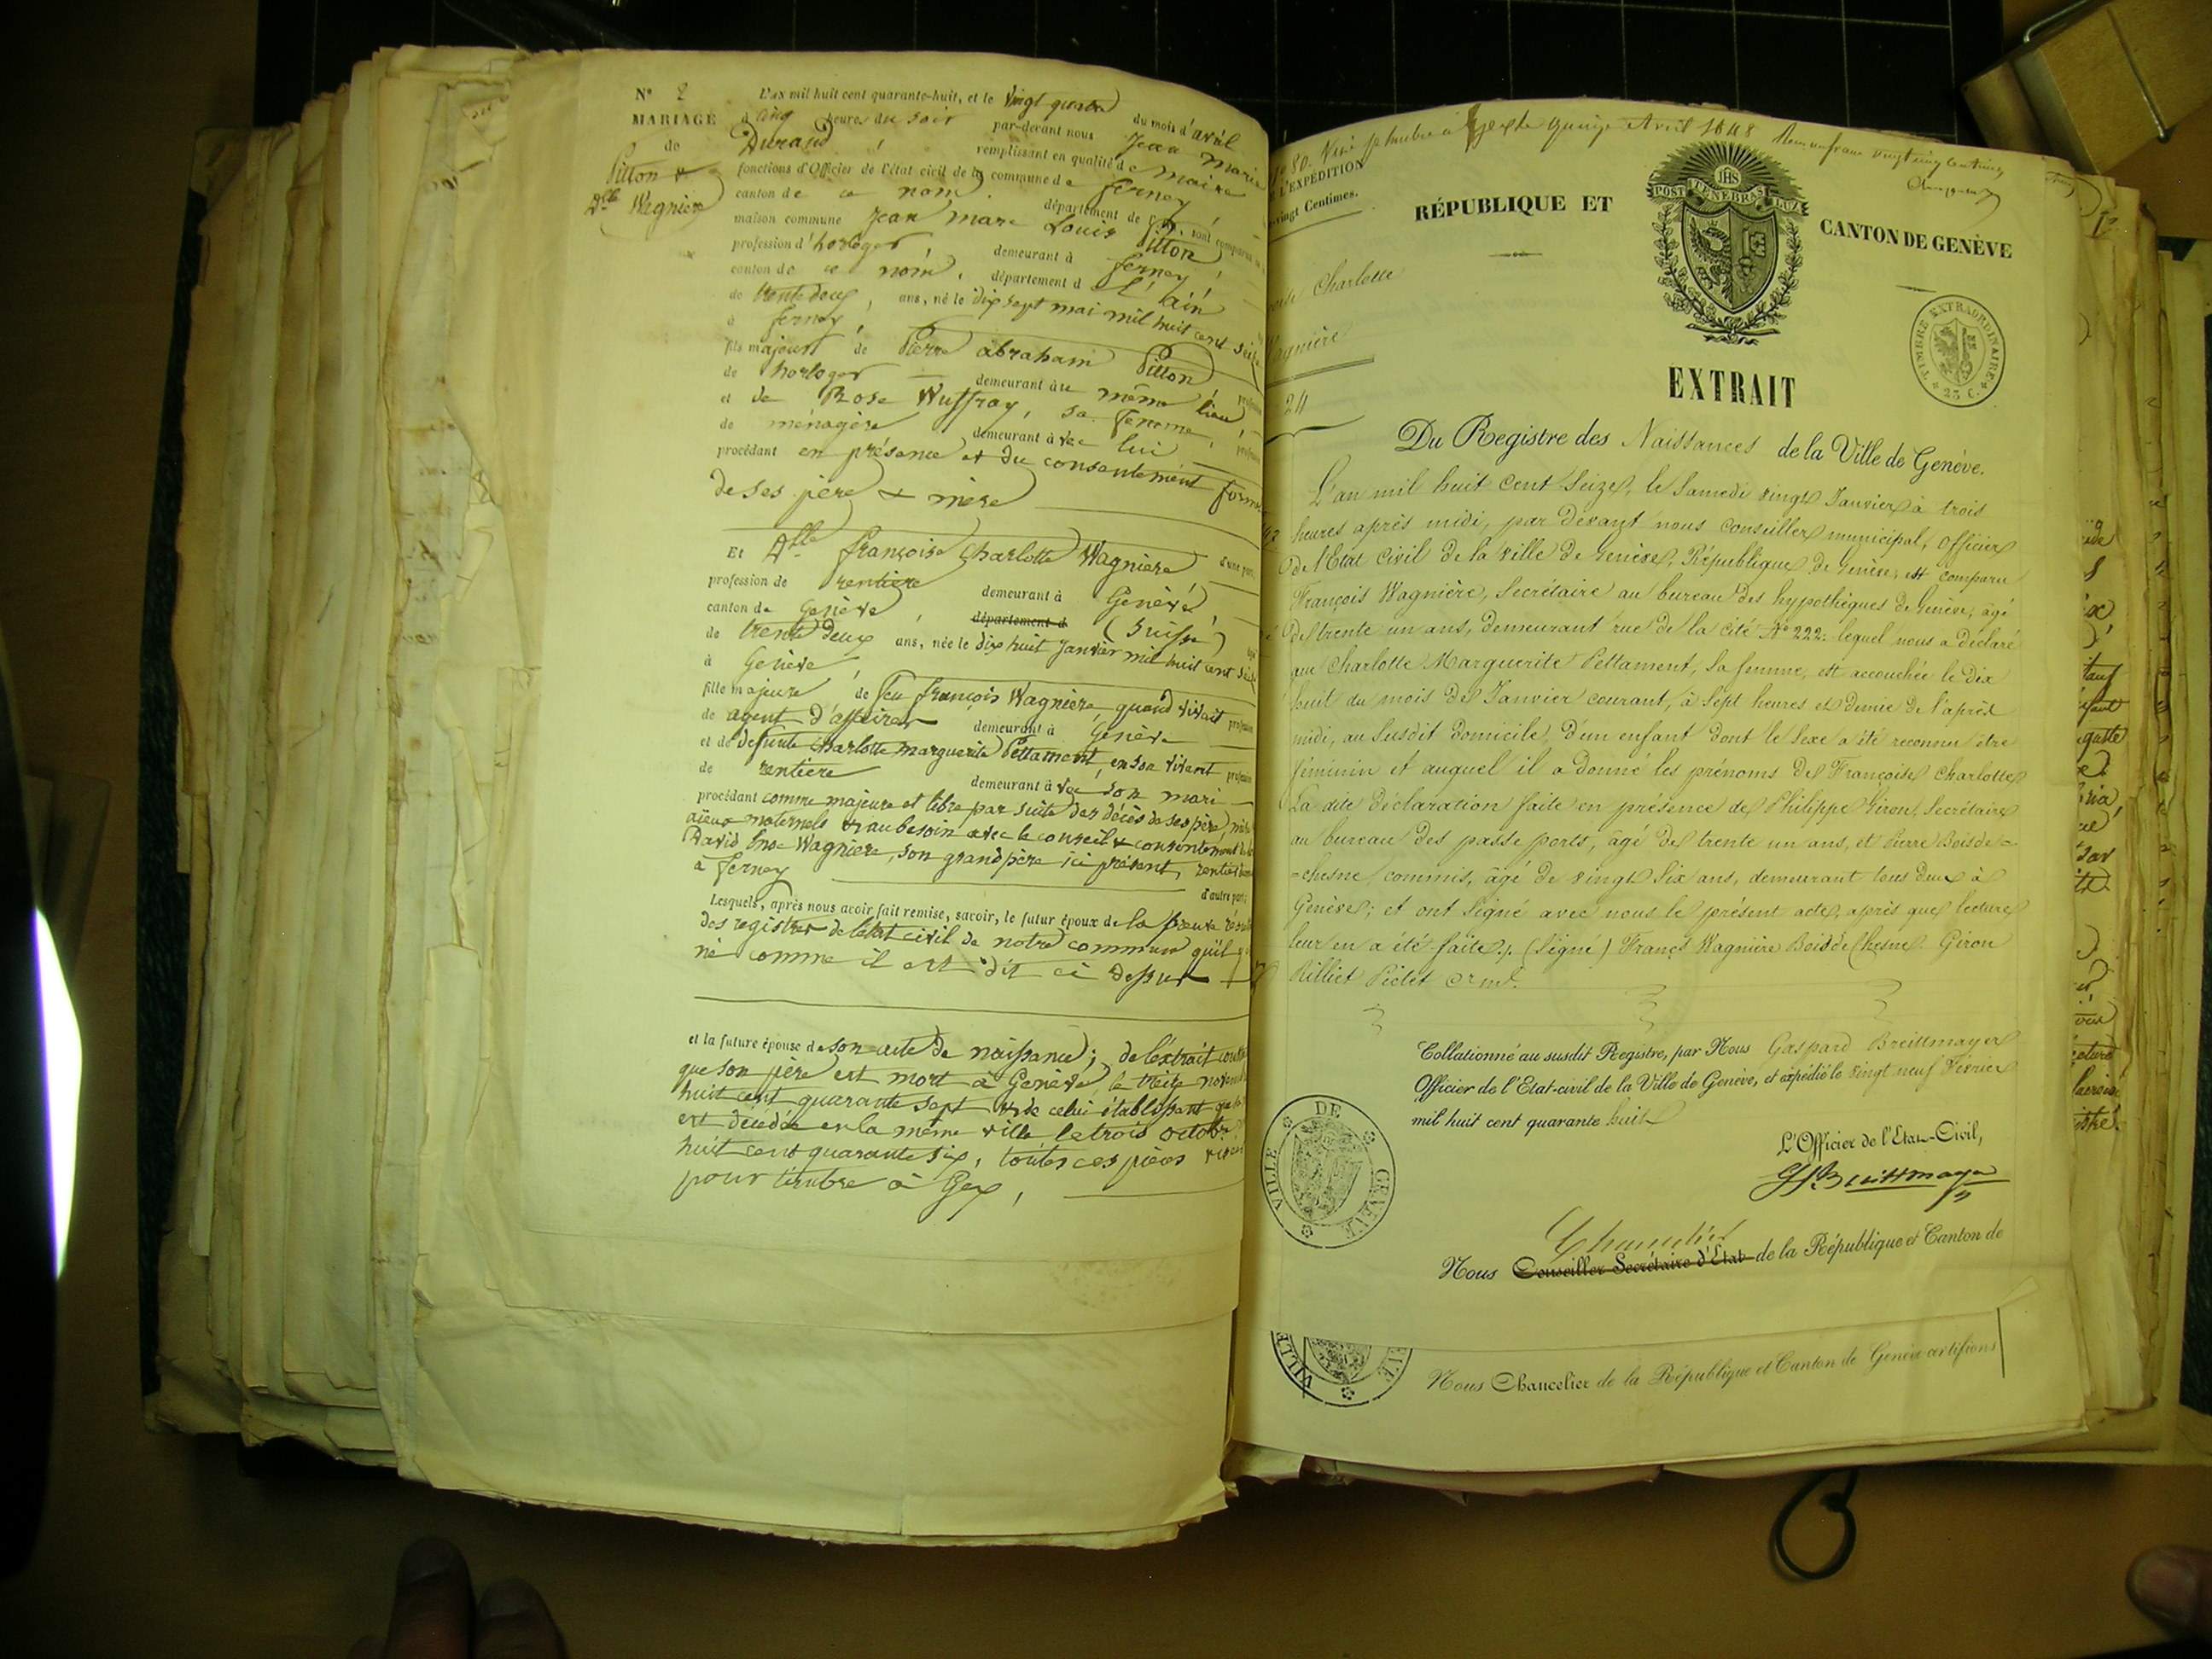 N° 2
MARIAGE
de
Pitton &
Dlle Wagnière
L'an mil huit cent quarante-huit, et le vingt quatre du mois d'avril
à cinq heures du soir par-devant nous Jean Marie
Durand remplissant en qualité de Maire
fonctions d'Officier de l'état civil de la commune de ferney
canton de ce nom département de
maison commune Jean Marc Louis Pitton
profession d'horloger, demeurant à ferney,
canton de ce nom, département d L'ain
de trente deux, ans, né le dix sept mai mil huit cent seize
à ferney,
fils majeur de Pierre abraham Pitton
de horloger demeurant au même lieu
et de Rose Wuffray, sa femme,
de ménagère demeurant avec lui
procédant en présence et du consentement
de ses père & mère
Et Dlle françoise Charlotte Wagnière d'une part,
profession de rentière demeurant à Genève
canton de Genève, département d (Suisse)
de trente deux ans, née le dix huit Janvier mil huit cent seize
à Genève
fille majeure de feu françois Wagnière quand vivait
de agent d'affaires demeurant à Genève
et de défunte Charlotte marguerite Pettament, en son vivant
de rentière demeurant avec son mari
procédant comme majeure et libre par suite des décès de ses père, mère
aïeux maternels & au besoin avec le conseil & consentement
David Wagnière, son grand père ici présent, rentier
à ferney
d'autre part;
Lesquels, après nous avoir fait remise, savoir, le futur époux de la preuve
des registres de l'état civil de notre commune qu'il
né comme il est dit ci dessus
et la future épouse de son acte de naissance; de l'extrait
que son père est mort à Genève le treize
huit cent quarante sept & de celui établissant que
est décédée en la même ville le trois octobre
huit cent quarante six, toutes ces pièces
pour timbre à Gex,
timbre à Gex le quinze Avril 1848
L'EXPÉDITION
vingt Centimes.
Charlotte
Wagnière
24
RÉPUBLIQUE ET CANTON DE GENÈVE
JHS
POST TENEBRAS LUX
TIMBRE EXTRAORDINAIRE
25 C.
EXTRAIT
Du Registre des Naissances de la Ville de Genève.
L'an mil huit cent seize, le Samedi vingt Janvier à trois
heures après midi, par devant nous conseiller municipal, officier
de l'Etat Civil de la ville de Genève, République de Genève, est comparu
François Wagnière, Secrétaire au bureau des hypothèques de Genève, âgé
de trente un ans, demeurant rue de la cité N° 222. lequel nous a déclaré
que Charlotte Marguerite Pettament, sa femme, est accouchée le Dix
huit du mois de Janvier courant, à sept heures et demie de l'après
midi, au susdit domicile, d'un enfant dont le sexe a été reconnu être
féminin et auquel il a donné les prénoms de Françoise Charlotte
La dite déclaration faite en présence de Philippe Giron, Secrétaire
au bureau des passe ports, âgé de trente un ans, et Pierre Boisde=
=chesne, commis, âgé de vingt six ans, demeurant tous deux à
Genève; et ont signé avec nous le présent acte, après que lecture
leur en a été faite. (signé) Franç. Wagnière BoisdeChesne. Giron
Rilliet Pictet
Collationné au susdit Registre, par Nous Gaspard Breittmayer
Officier de l'Etat-civil de la Ville de Genève, et expédié le vingt neuf Février
mil huit cent quarante huit
VILLE DE GENÈVE
L'Officier de l'Etat-Civil,
Gd. Breittmayer
Chancelier
Nous Conseiller Secrétaire d'Etat de la République et Canton de
Nous Chancelier de la République et Canton de Genève certifions